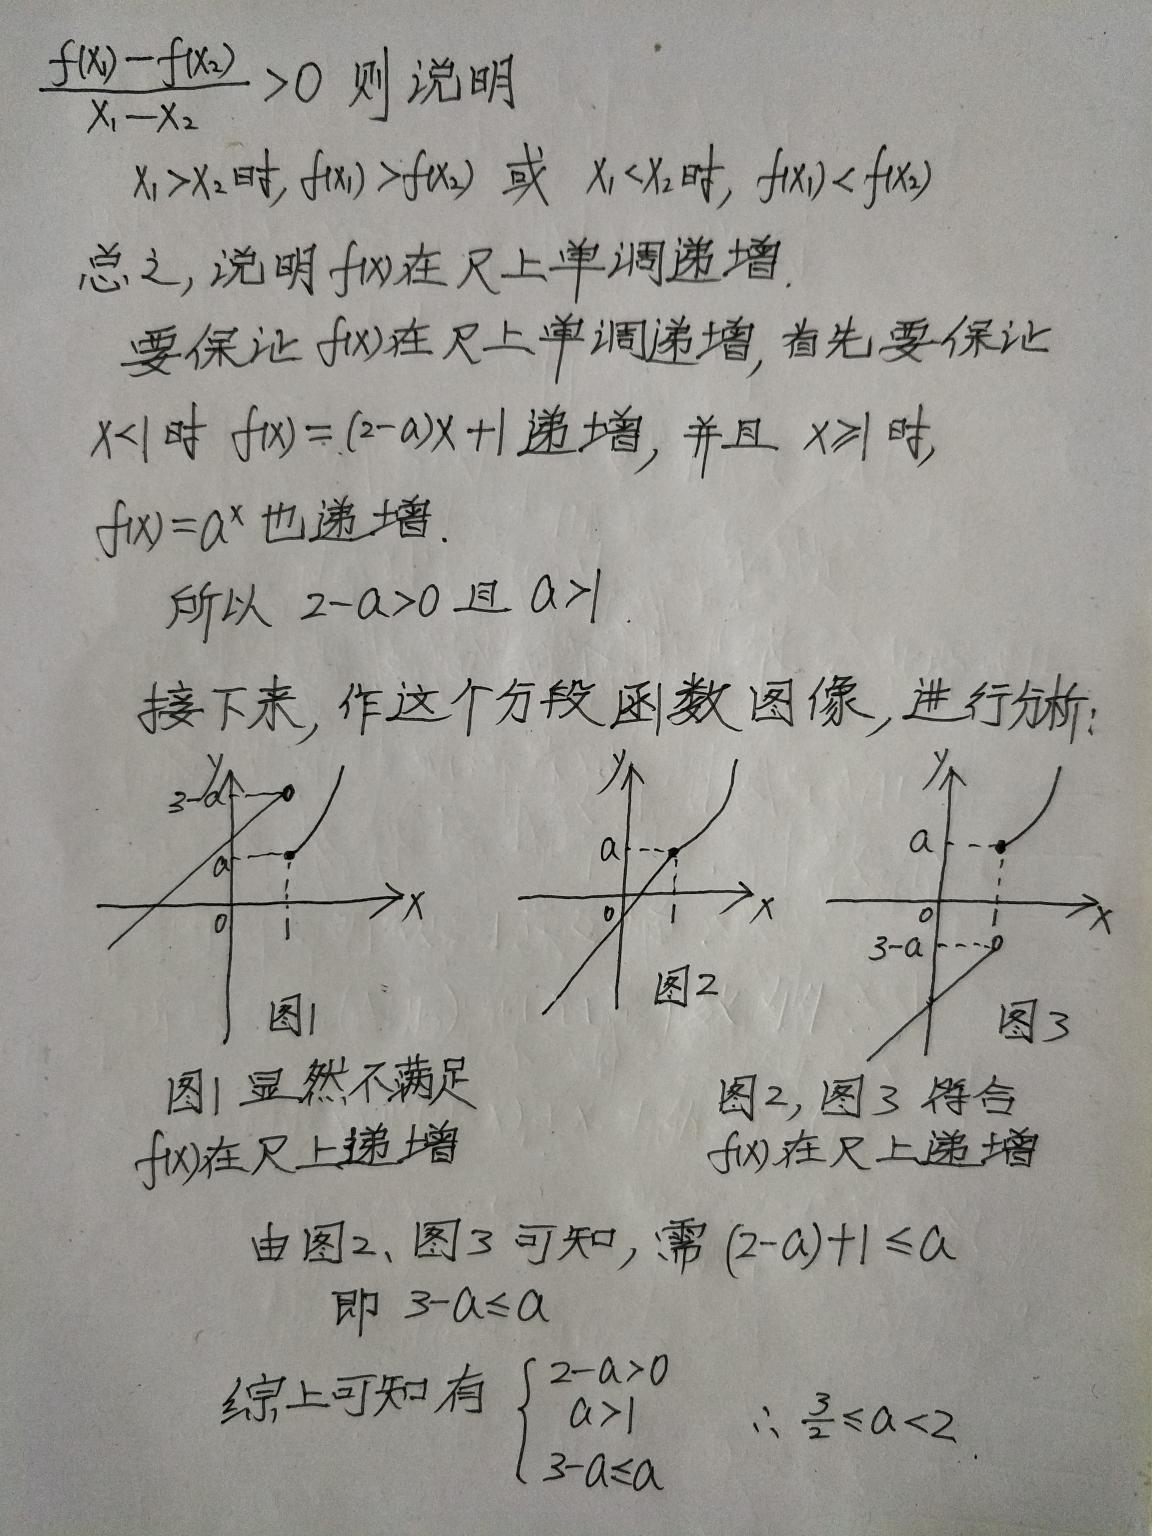 f(x₁)-f(x₂)/x₁-x₂ >0 则说明
x₁>x₂时, f(x₁)>f(x₂) 或 x₁<x₂时, f(x₁)<f(x₂)
总之, 说明f(x)在R上单调递增.
要保证f(x)在R上单调递增, 首先要保证
x<1时 f(x)=(2-a)x+1递增, 并且 x≥1时,
f(x)=aˣ也递增.
所以 2-a>0且 a>1.
接下来, 作这个分段函数图像, 进行分析:
y
3-a
a
0
1
x
图1
y
a
0
1
x
图2
y
a
0
x
3-a
图3
图1显然不满足
f(x)在R上递增
图2, 图3符合
f(x)在R上递增
由图2、图3可知, 需(2-a)+1≤a
即 3-a≤a
综上可知有
2-a>0
a>1
3-a≤a
∴ 3/2≤a<2.